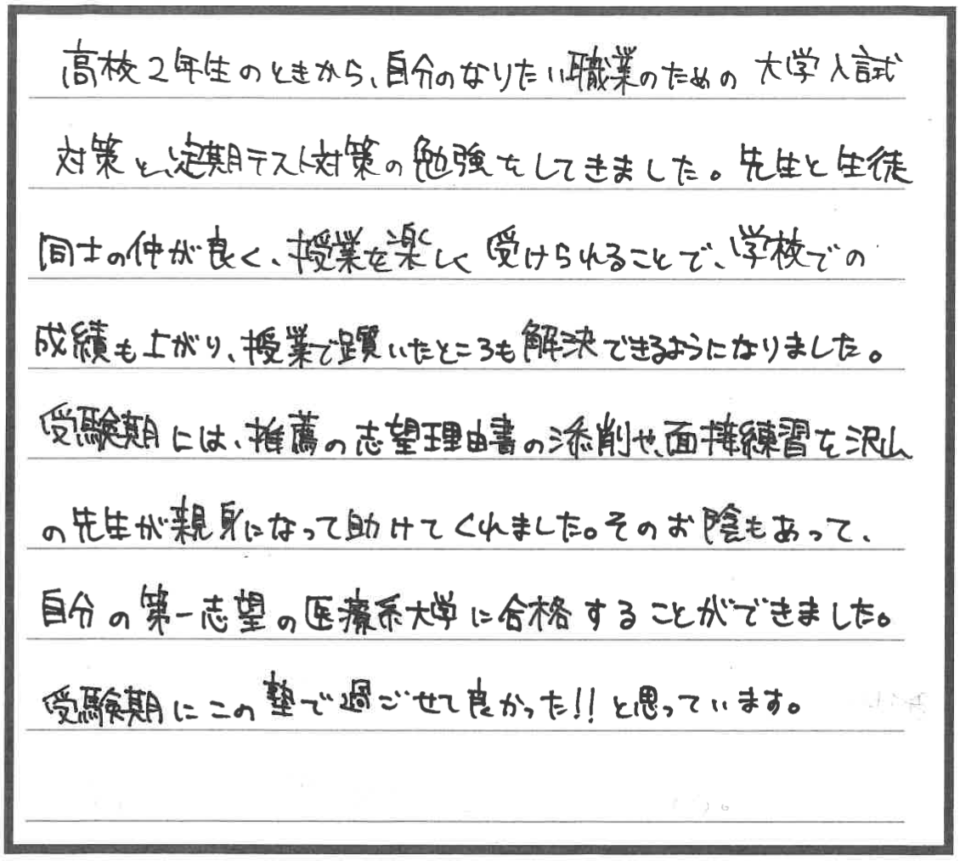 高校2年生のときから、自分のなりたい職業のための大学入試
対策と、定期テスト対策の勉強をしてきました。先生と生徒
同士の仲が良く、授業を楽しく受けられることで、学校での
成績も上がり、授業で躓いたところも解決できるようになりました。
受験期には、推薦の志望理由書の添削や、面接練習を沢山
の先生が親身になって助けてくれました。そのお陰もあって、
自分の第一志望の医療系大学に合格することができました。
受験期にこの塾で過ごせて良かった!!と思っています。